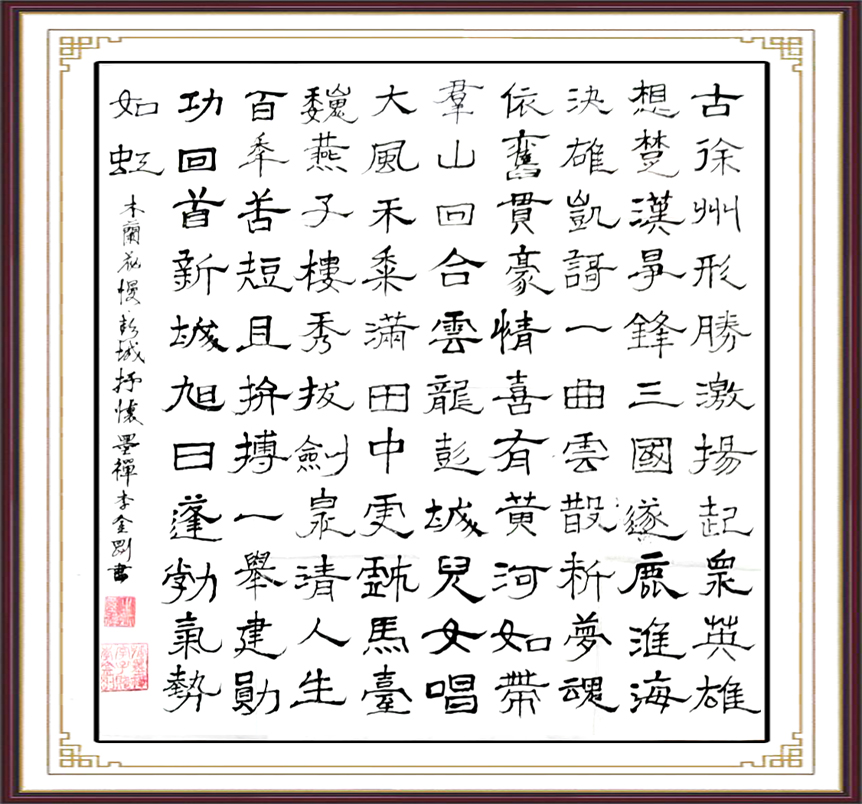 古徐州形勝激揚起眾英雄
想楚漢爭鋒三國逐鹿淮海
決雄凱謌一曲雲散析夢魂
依舊貫豪情喜有黃河如帶
羣山回合雲龍彭城兒女唱
大風禾黍滿田中更戲馬臺
巍燕子樓秀拔劍泉清人生
百年苦短且拚搏一舉建勛
功回首新城旭日蓬勃氣勢
如虹
木蘭花慢彭城抒懷墨禪李金剛書